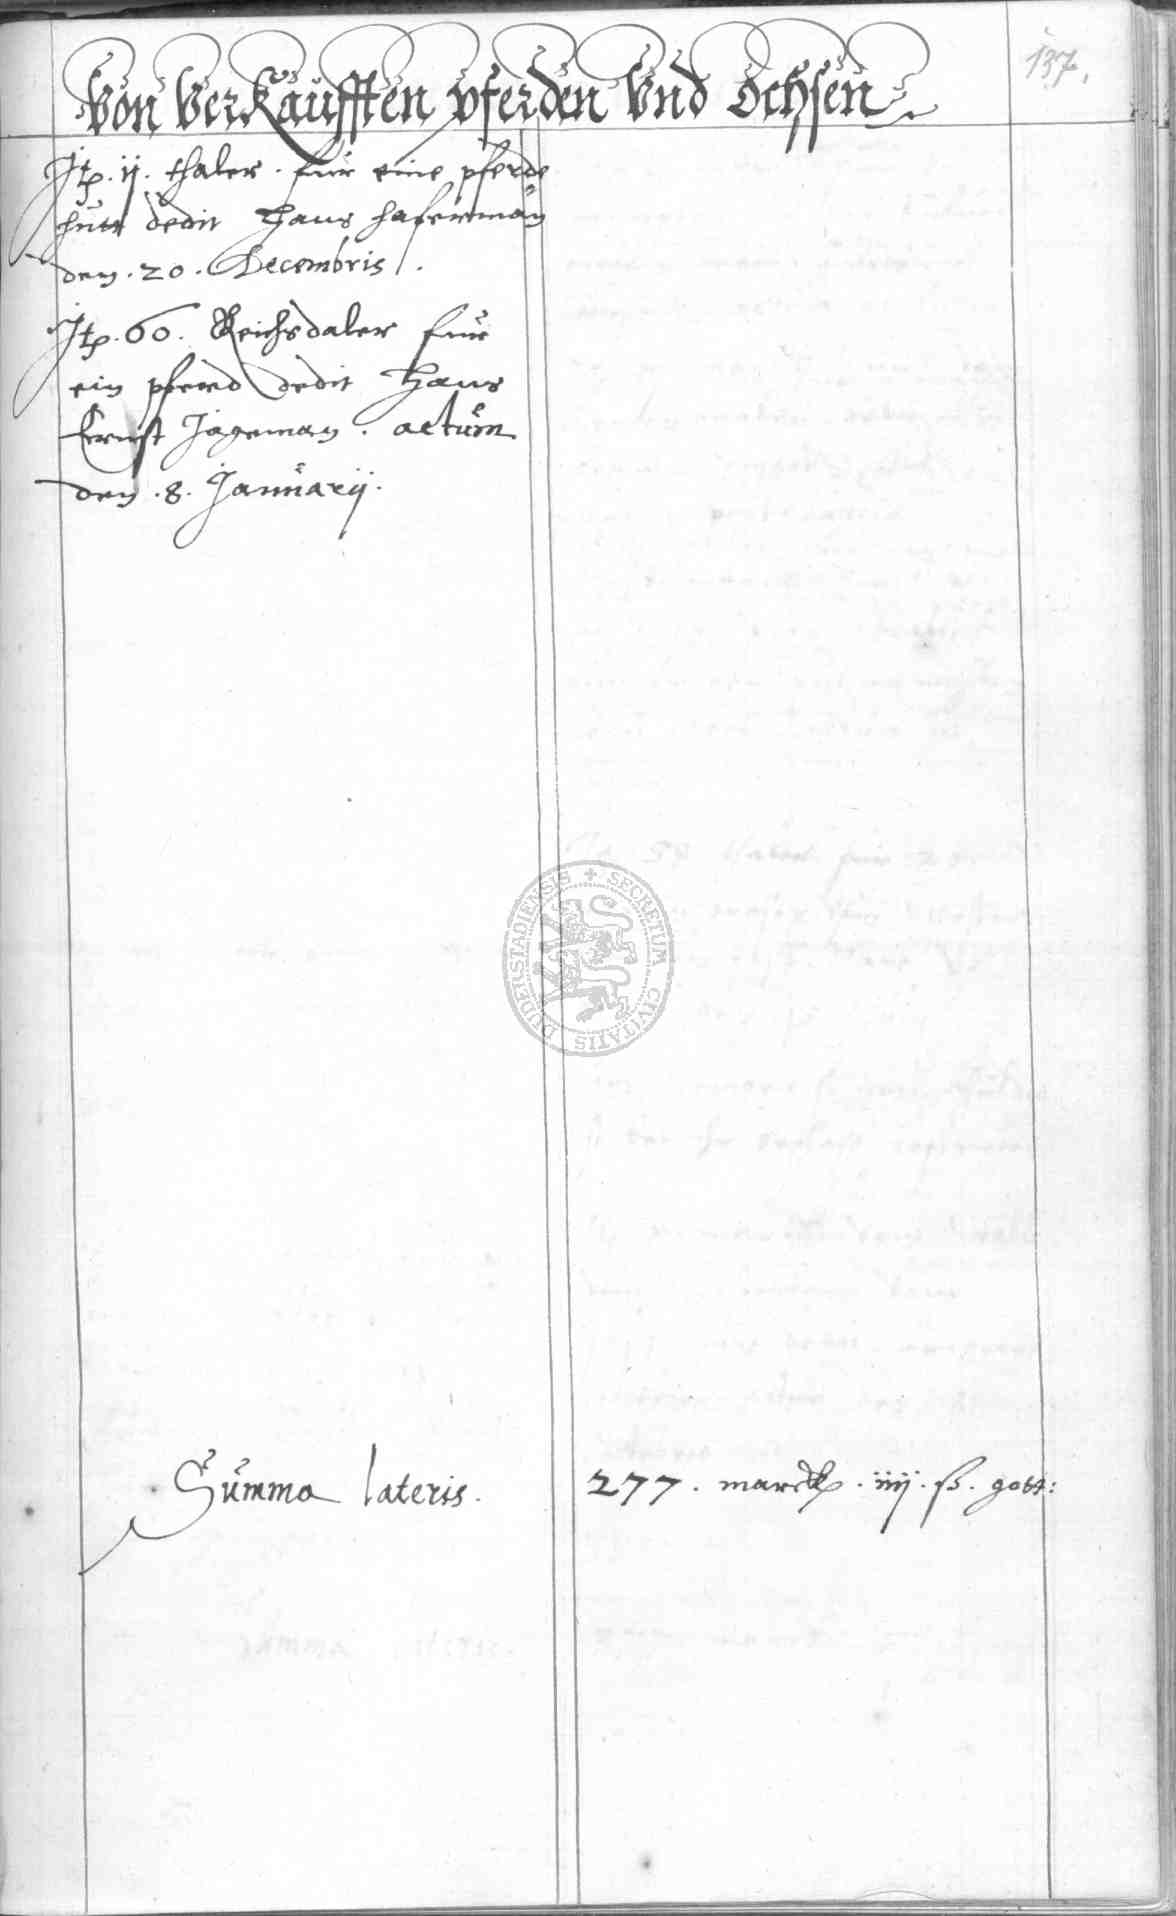 137.
Von Verkaufften pferden Vnd Ochsen
Itp. ij. thaler. fur eine pferde
hutt dedit Hans haferman
den. 20. Decembris.
Itp. 60. Reichsdaler fur
ein pferd dedit Hans
Ernst Jageman. actum
den. 8. Januarij.
SECRETUM CIVITATIS DUDERSTADIENSIS
Summa lateris. 277. marck. iiij. ß. gott: